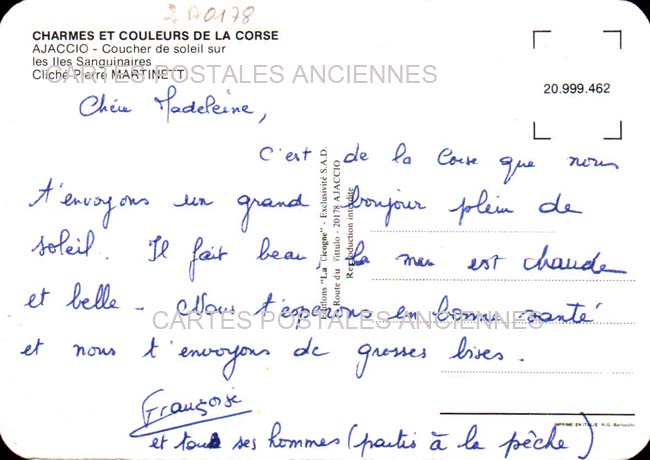 2A0178
CHARMES ET COULEURS DE LA CORSE
AJACCIO - Coucher de soleil sur
les Iles Sanguinaires
Cliché Pierre MARTINETTI
CARTES POSTALES ANCIENNES
20.999.462
Chère Madeleine,
C'est de la Corse que nous
t'envoyons un grand bonjour plein de
soleil. Il fait beau, la mer est chaude
et belle - Nous t'espérons en bonne santé
et nous t'envoyons de grosses bises.
Françoise
et tous ses hommes (partis à la pêche)
Editions "La Cigogne" - Exclusivité S.A.D.
Route du Vittulo - 20178 AJACCIO
Reproduction interdite
CARTES POSTALES ANCIENNES
IMPRIMÉ EN ITALIE